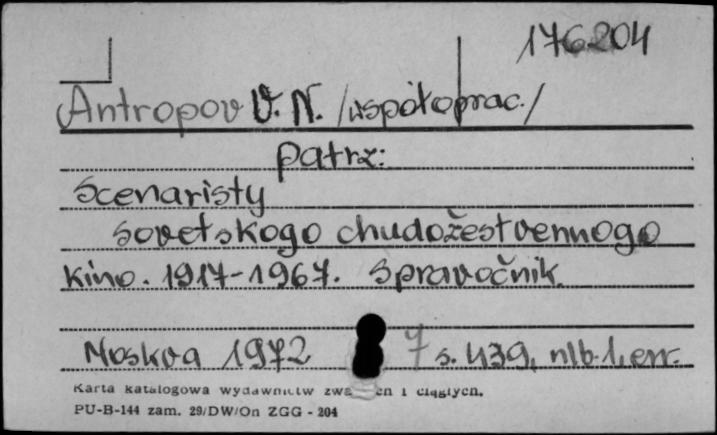 176204
Antropov V. N. /współoprac./
patrz:
Scenaristy
sovetskogo chudožestvennogo
kino. 1917-1967. Spravočnik.
Moskva 1972 7 s. 439, nlb. 1, err.
Karta katalogowa wydawnictw i ciągłych.
PU-B-144 zam. 29/DW/On ZGG - 204